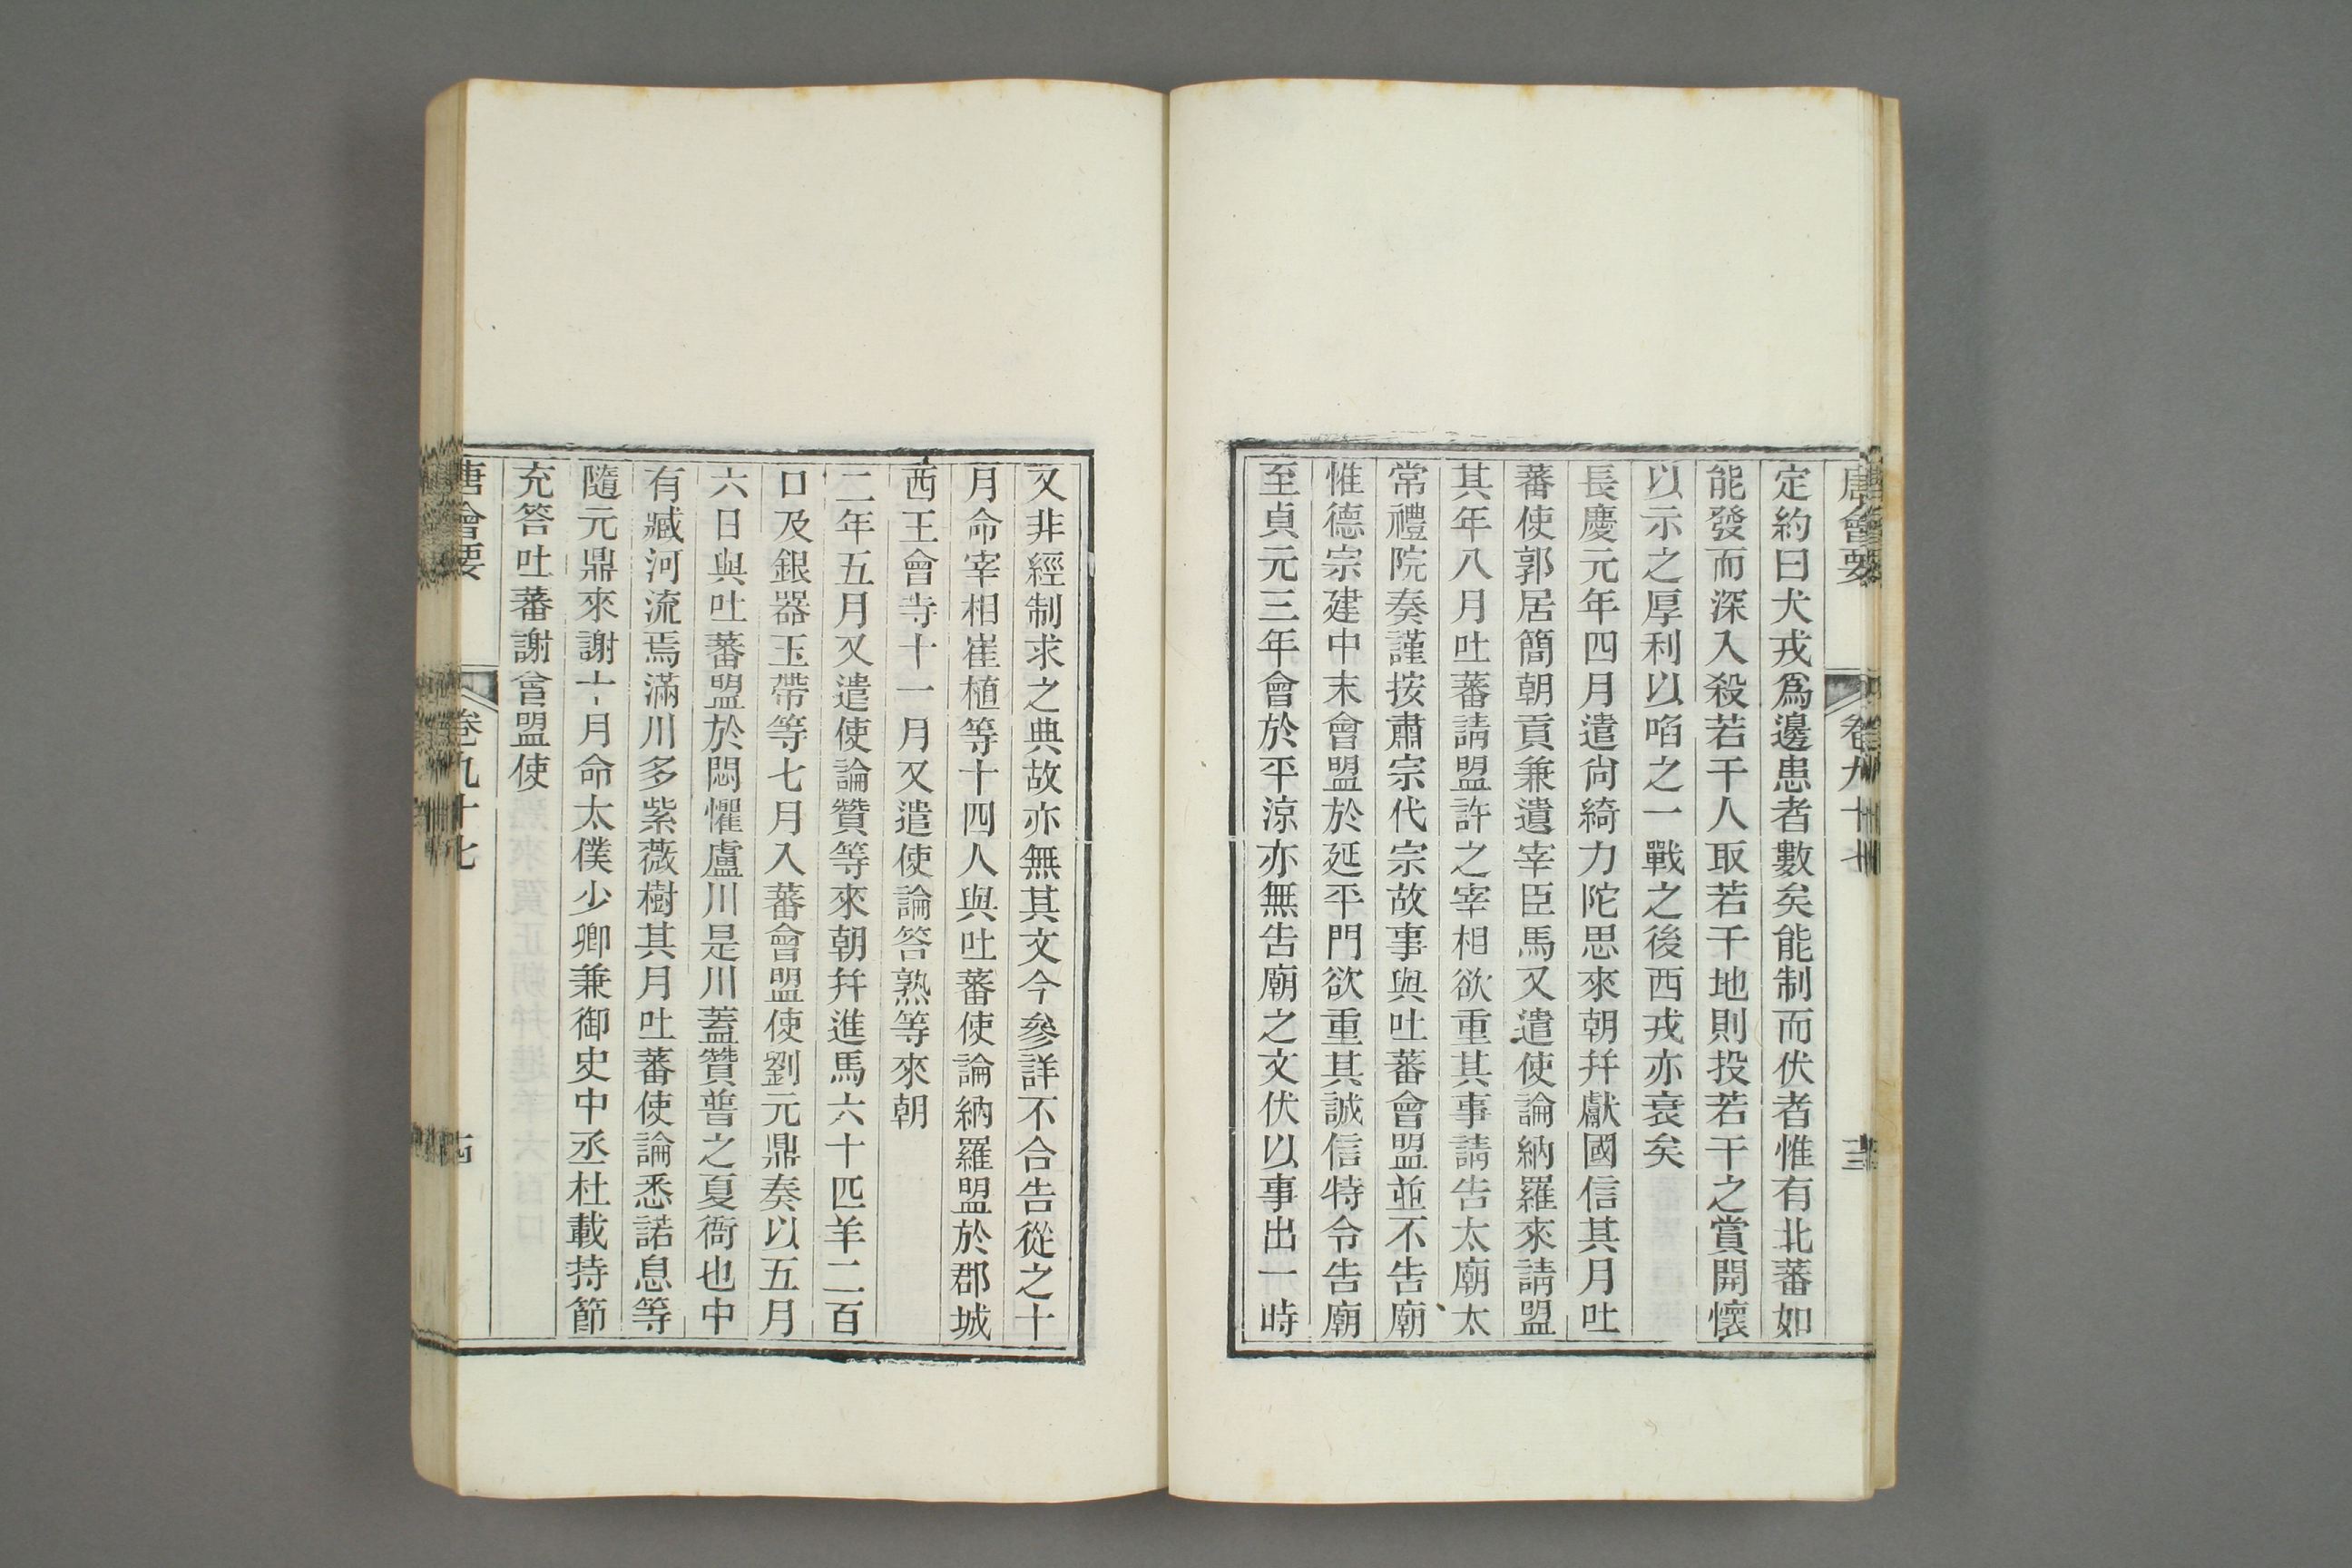 唐會要 卷九十七 十三
定約曰犬戎爲邊患者數矣能制而伏者惟有北蕃如
能發而深入殺若干人取若干地則投若干之賞開懷
以示之厚利以啗之一戰之後西戎亦衰矣
長慶元年四月遣尙綺力陀思來朝幷獻國信其月吐
蕃使郭居簡朝貢兼遺宰臣馬又遣使論納羅來請盟
其年八月吐蕃請盟許之宰相欲重其事請告太廟太
常禮院奏謹按肅宗代宗故事與吐蕃會盟並不告廟
惟德宗建中末會盟於延平門欲重其誠信特令告廟
至貞元三年會於平涼亦無告廟之文伏以事出一時
又非經制求之典故亦無其文今參詳不合告從之十
月命宰相崔植等十四人與吐蕃使論納羅盟於郡城
西王會寺十一月又遣使論答熟等來朝
二年五月又遣使論贊等來朝幷進馬六十匹羊二百
口及銀器玉帶等七月入蕃會盟使劉元鼎奏以五月
六日與吐蕃盟於悶懼盧川是川蓋贊普之夏衙也中
有臧河流焉滿川多紫薇樹其月吐蕃使論悉諾息等
隨元鼎來謝十月命太僕少卿兼御史中丞杜載持節
充答吐蕃謝會盟使
唐會要 卷九十七